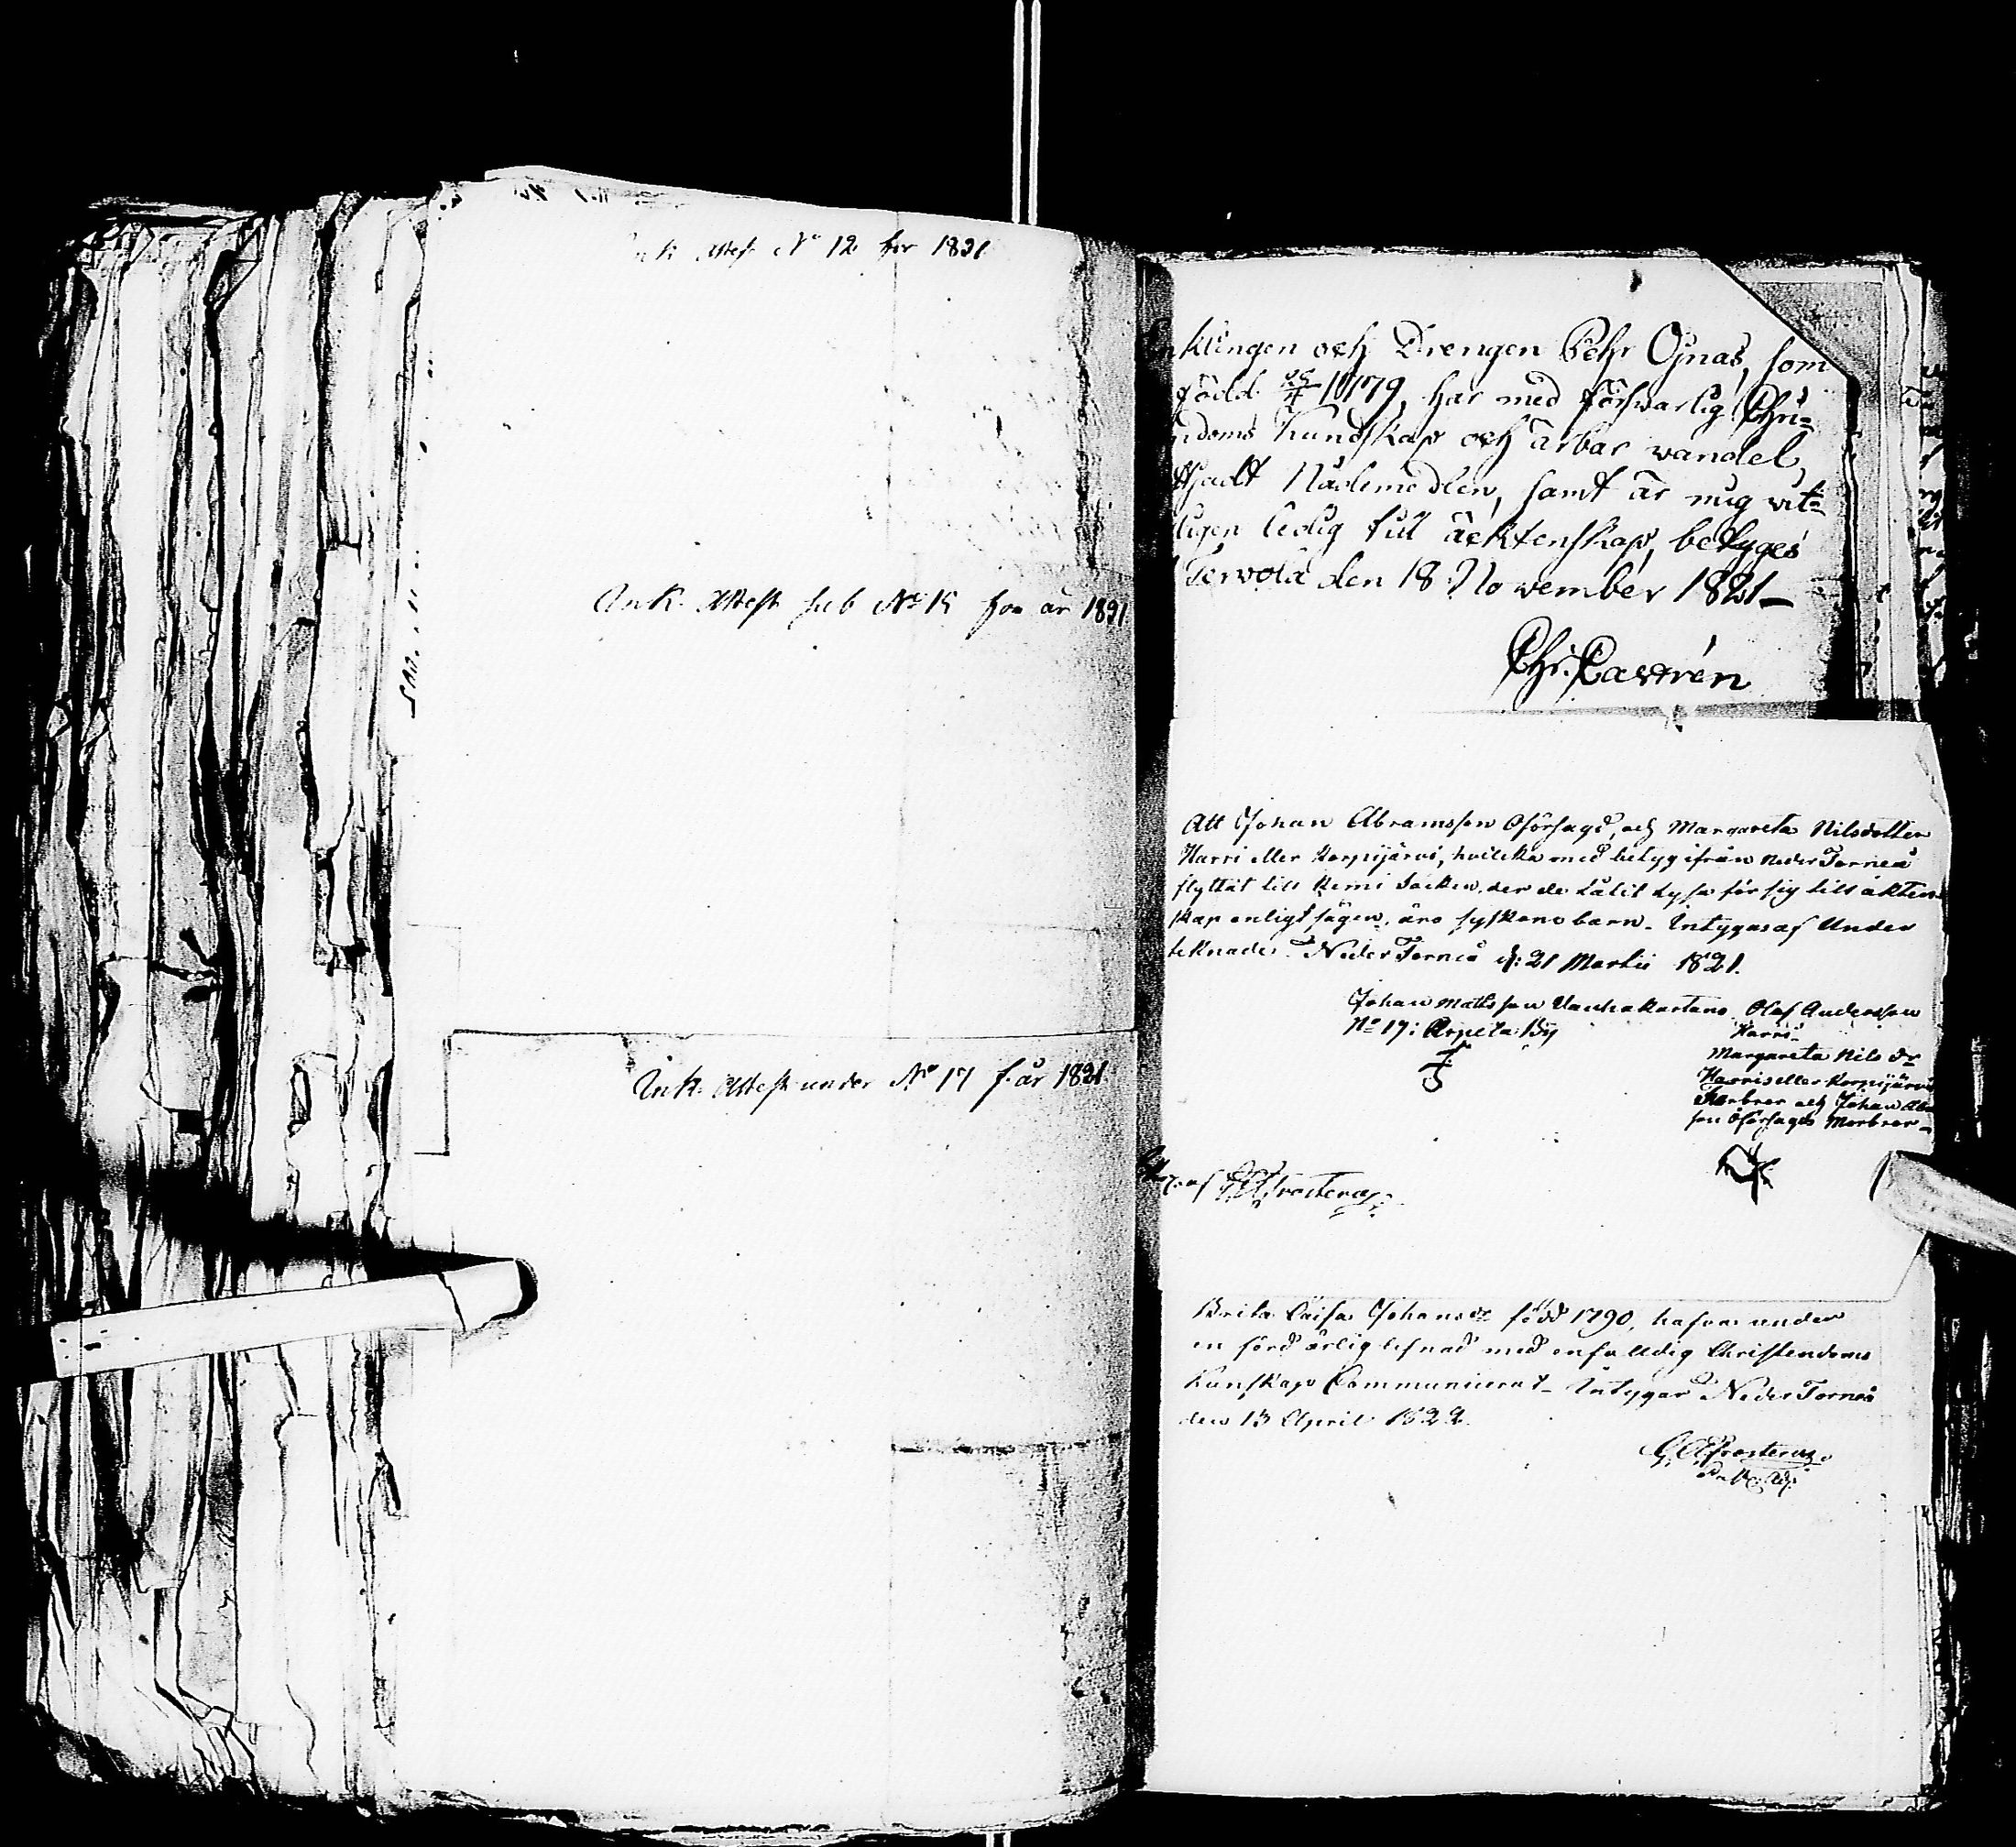 Ink. Attest N° 12 för 1821
Ink. Attest sub N° 15 för år 1821
Ink. Attest under N° 17 f. år 1821
nklingen och Drengen Pehr Ojnas, som
född 1779, har med försvarlig Chri=
ndoms Kundskap och ärbar wandel,
Nådemedlen, samt är mig vit=
ligen ledig till äcktenskap, betyges
Terwola den 18 November 1821 –
Chr. Castrén
Att Johan Abramsson Oförsagd, och Margareta Nilsdotter
Harri eller Korpijärvi, hvilka med betyg ifrån Neder Torneå
flyttat till Kemi Socken, der de låtit lysa för sig till äkten-
skap enligt sägen, äro syskone barn. Intygas af Under
teknade. Neder Torneå d: 21 Martii 1821.
Johan Mattsson Vanhakartano
N° 17: Arpela By
Olof Andersson
Harri
Margareta Nils dr
Harris eller Korpijärvi
Farbror och Johan Ab
son Oförsagds Morbror –
af Frosterus
Brita Caisa Johans dr född 1790, hafva under
en förd ärlig lefnad med enfalldig Christendoms
Kunskap Communicerat – Intygar Neder Torneå
den 13 April 1822.
G. A. Frosterus